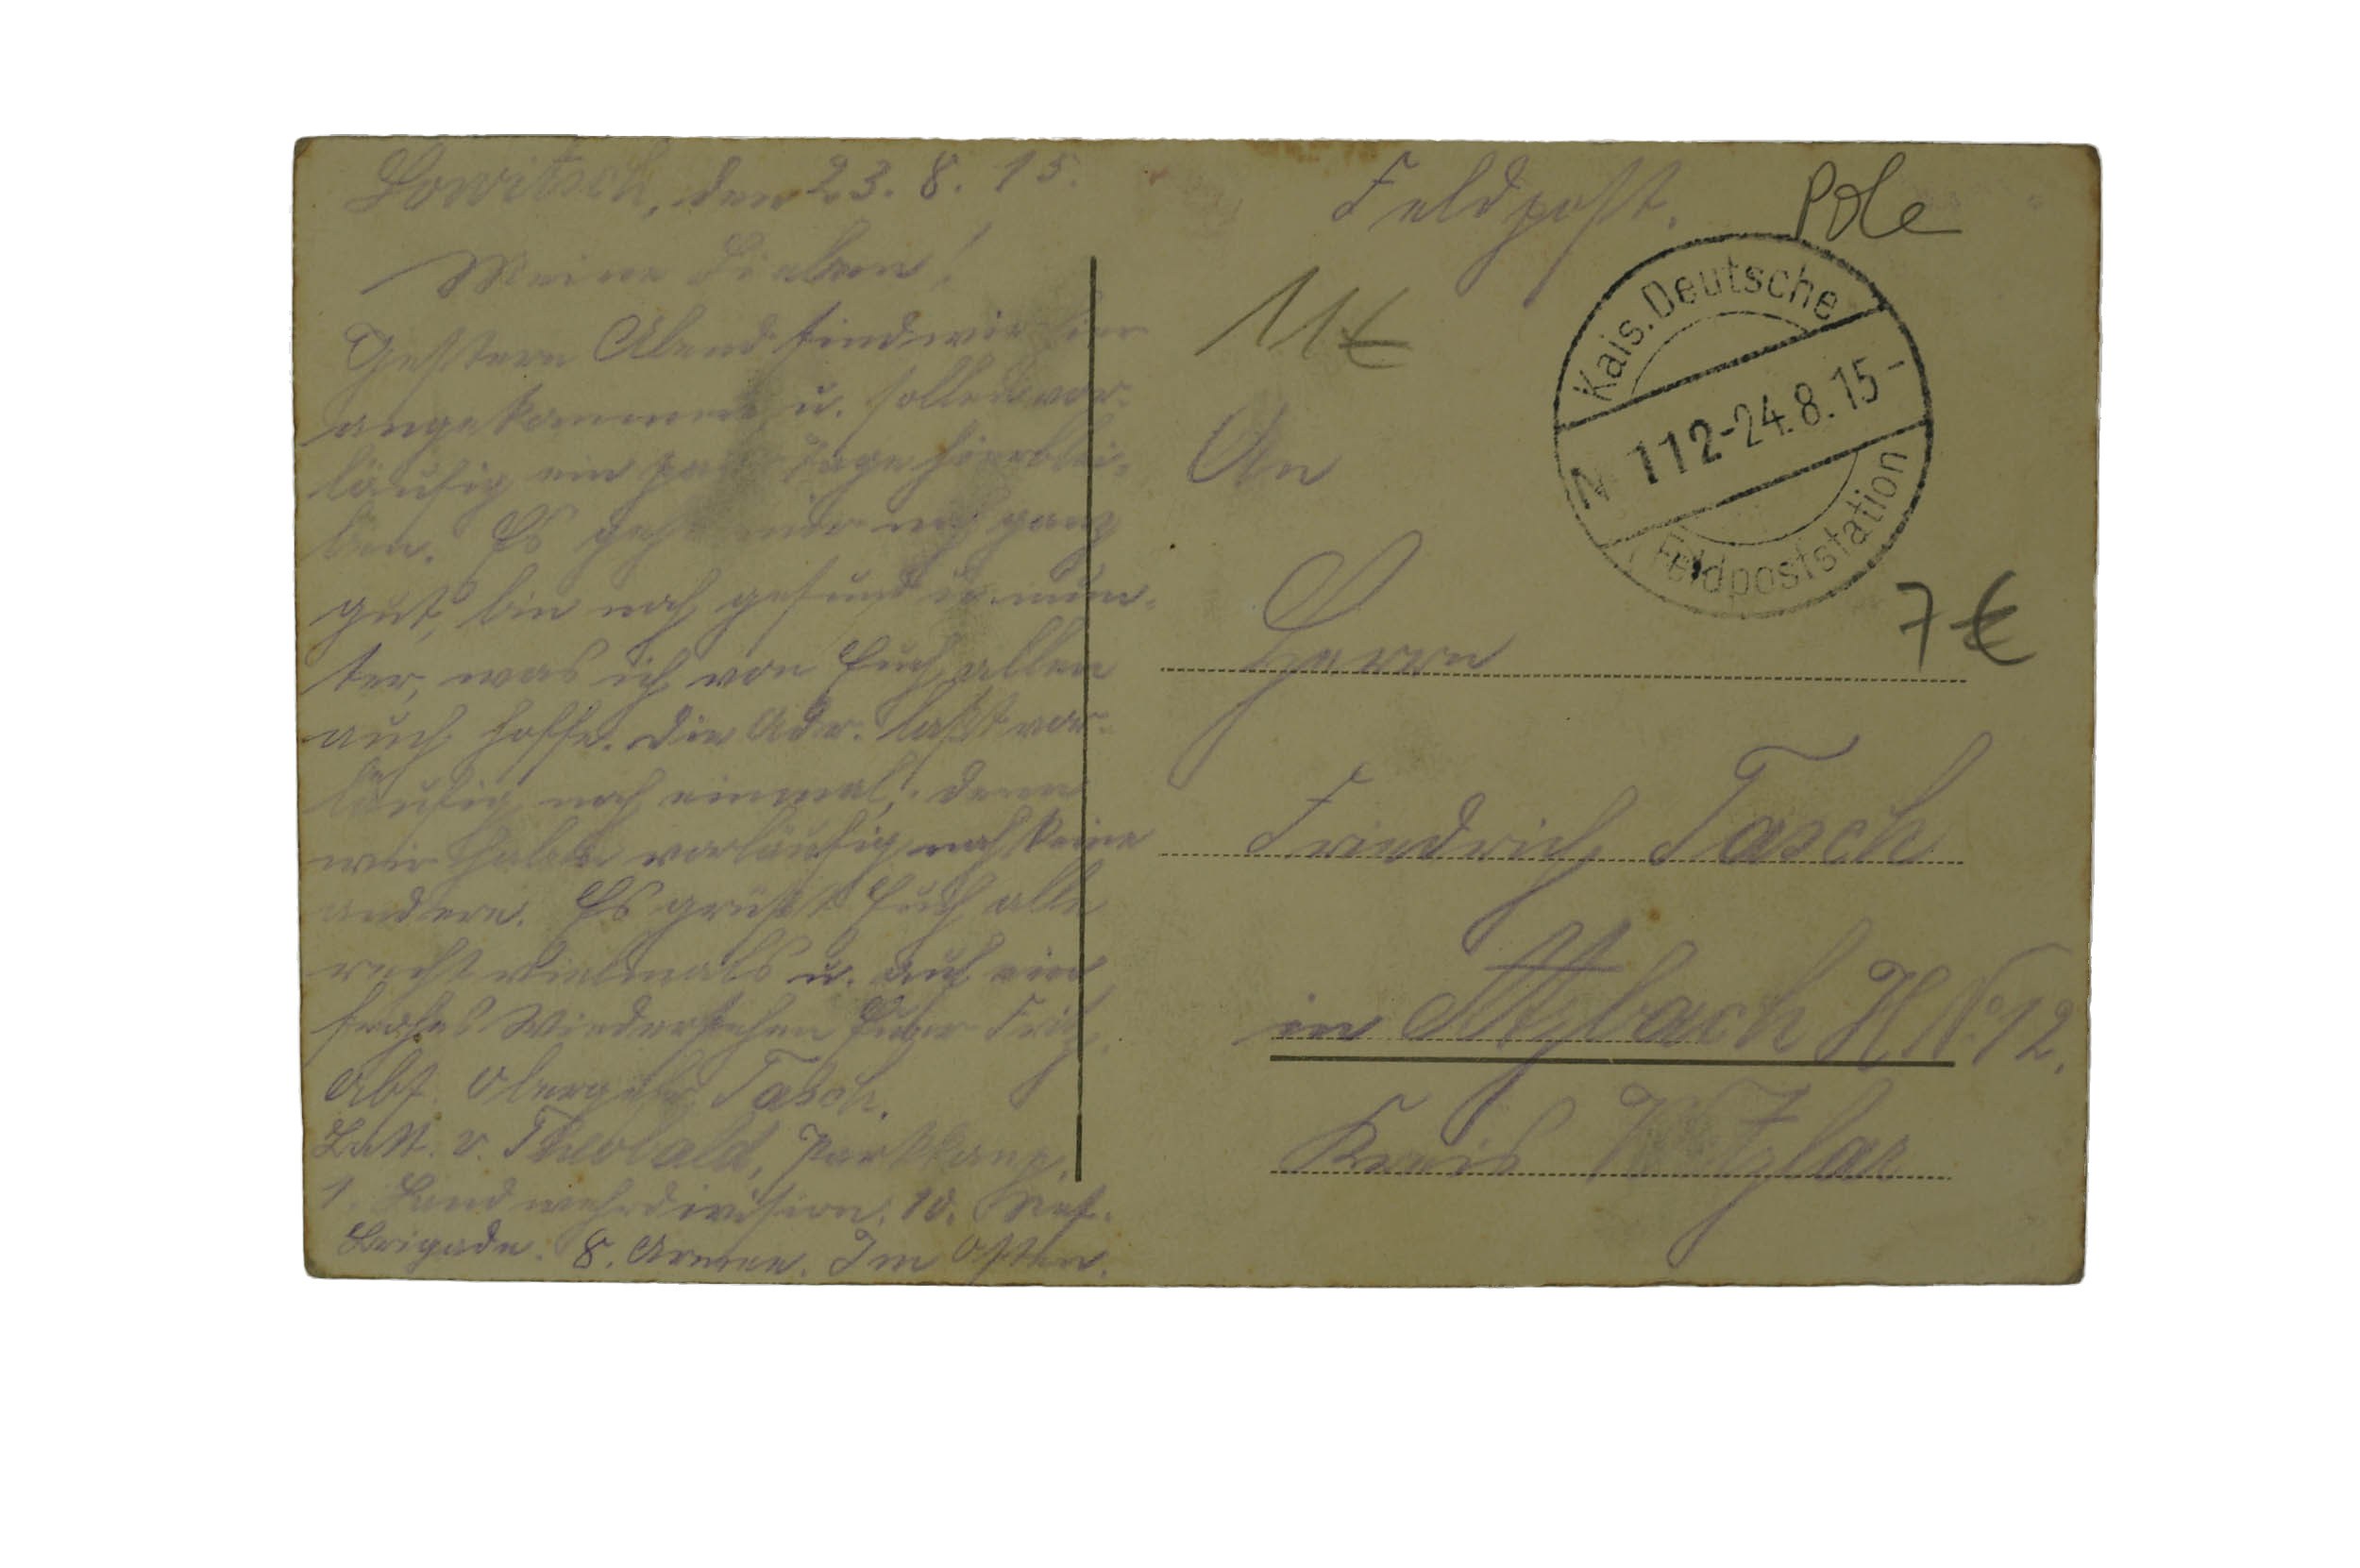 Lowitsch, den 23. 8. 15.
Meine Lieben!
Gestern Abend sind wir hier
angekommen u. sollen vor-
läufig ein paar Tage hierblei-
ben. Es geht mir noch ganz
gut, bin noch gesund u. mun-
ter, was ich von Euch allen
auch hoffe. Die Adr. laßt vor-
läufig noch einmal, denn
wir haben vorläufig noch keine
andere. Es grüßt Euch alle
recht vielmals u. auf ein
frohes Wiedersehen Euer Fritz.
Abs. Tasch.
v. Theobald,
1. Landwehrdivision. 10.
Brigade. 8. Armee. Im Osten.
Feldpost.
Pole
11€
Kais. Deutsche
N 112-24.8.15-
Feldpoststation
7€
An
Herrn
Friedrich Tasch
in Atzbach H No 12.
Kreis Wetzlar